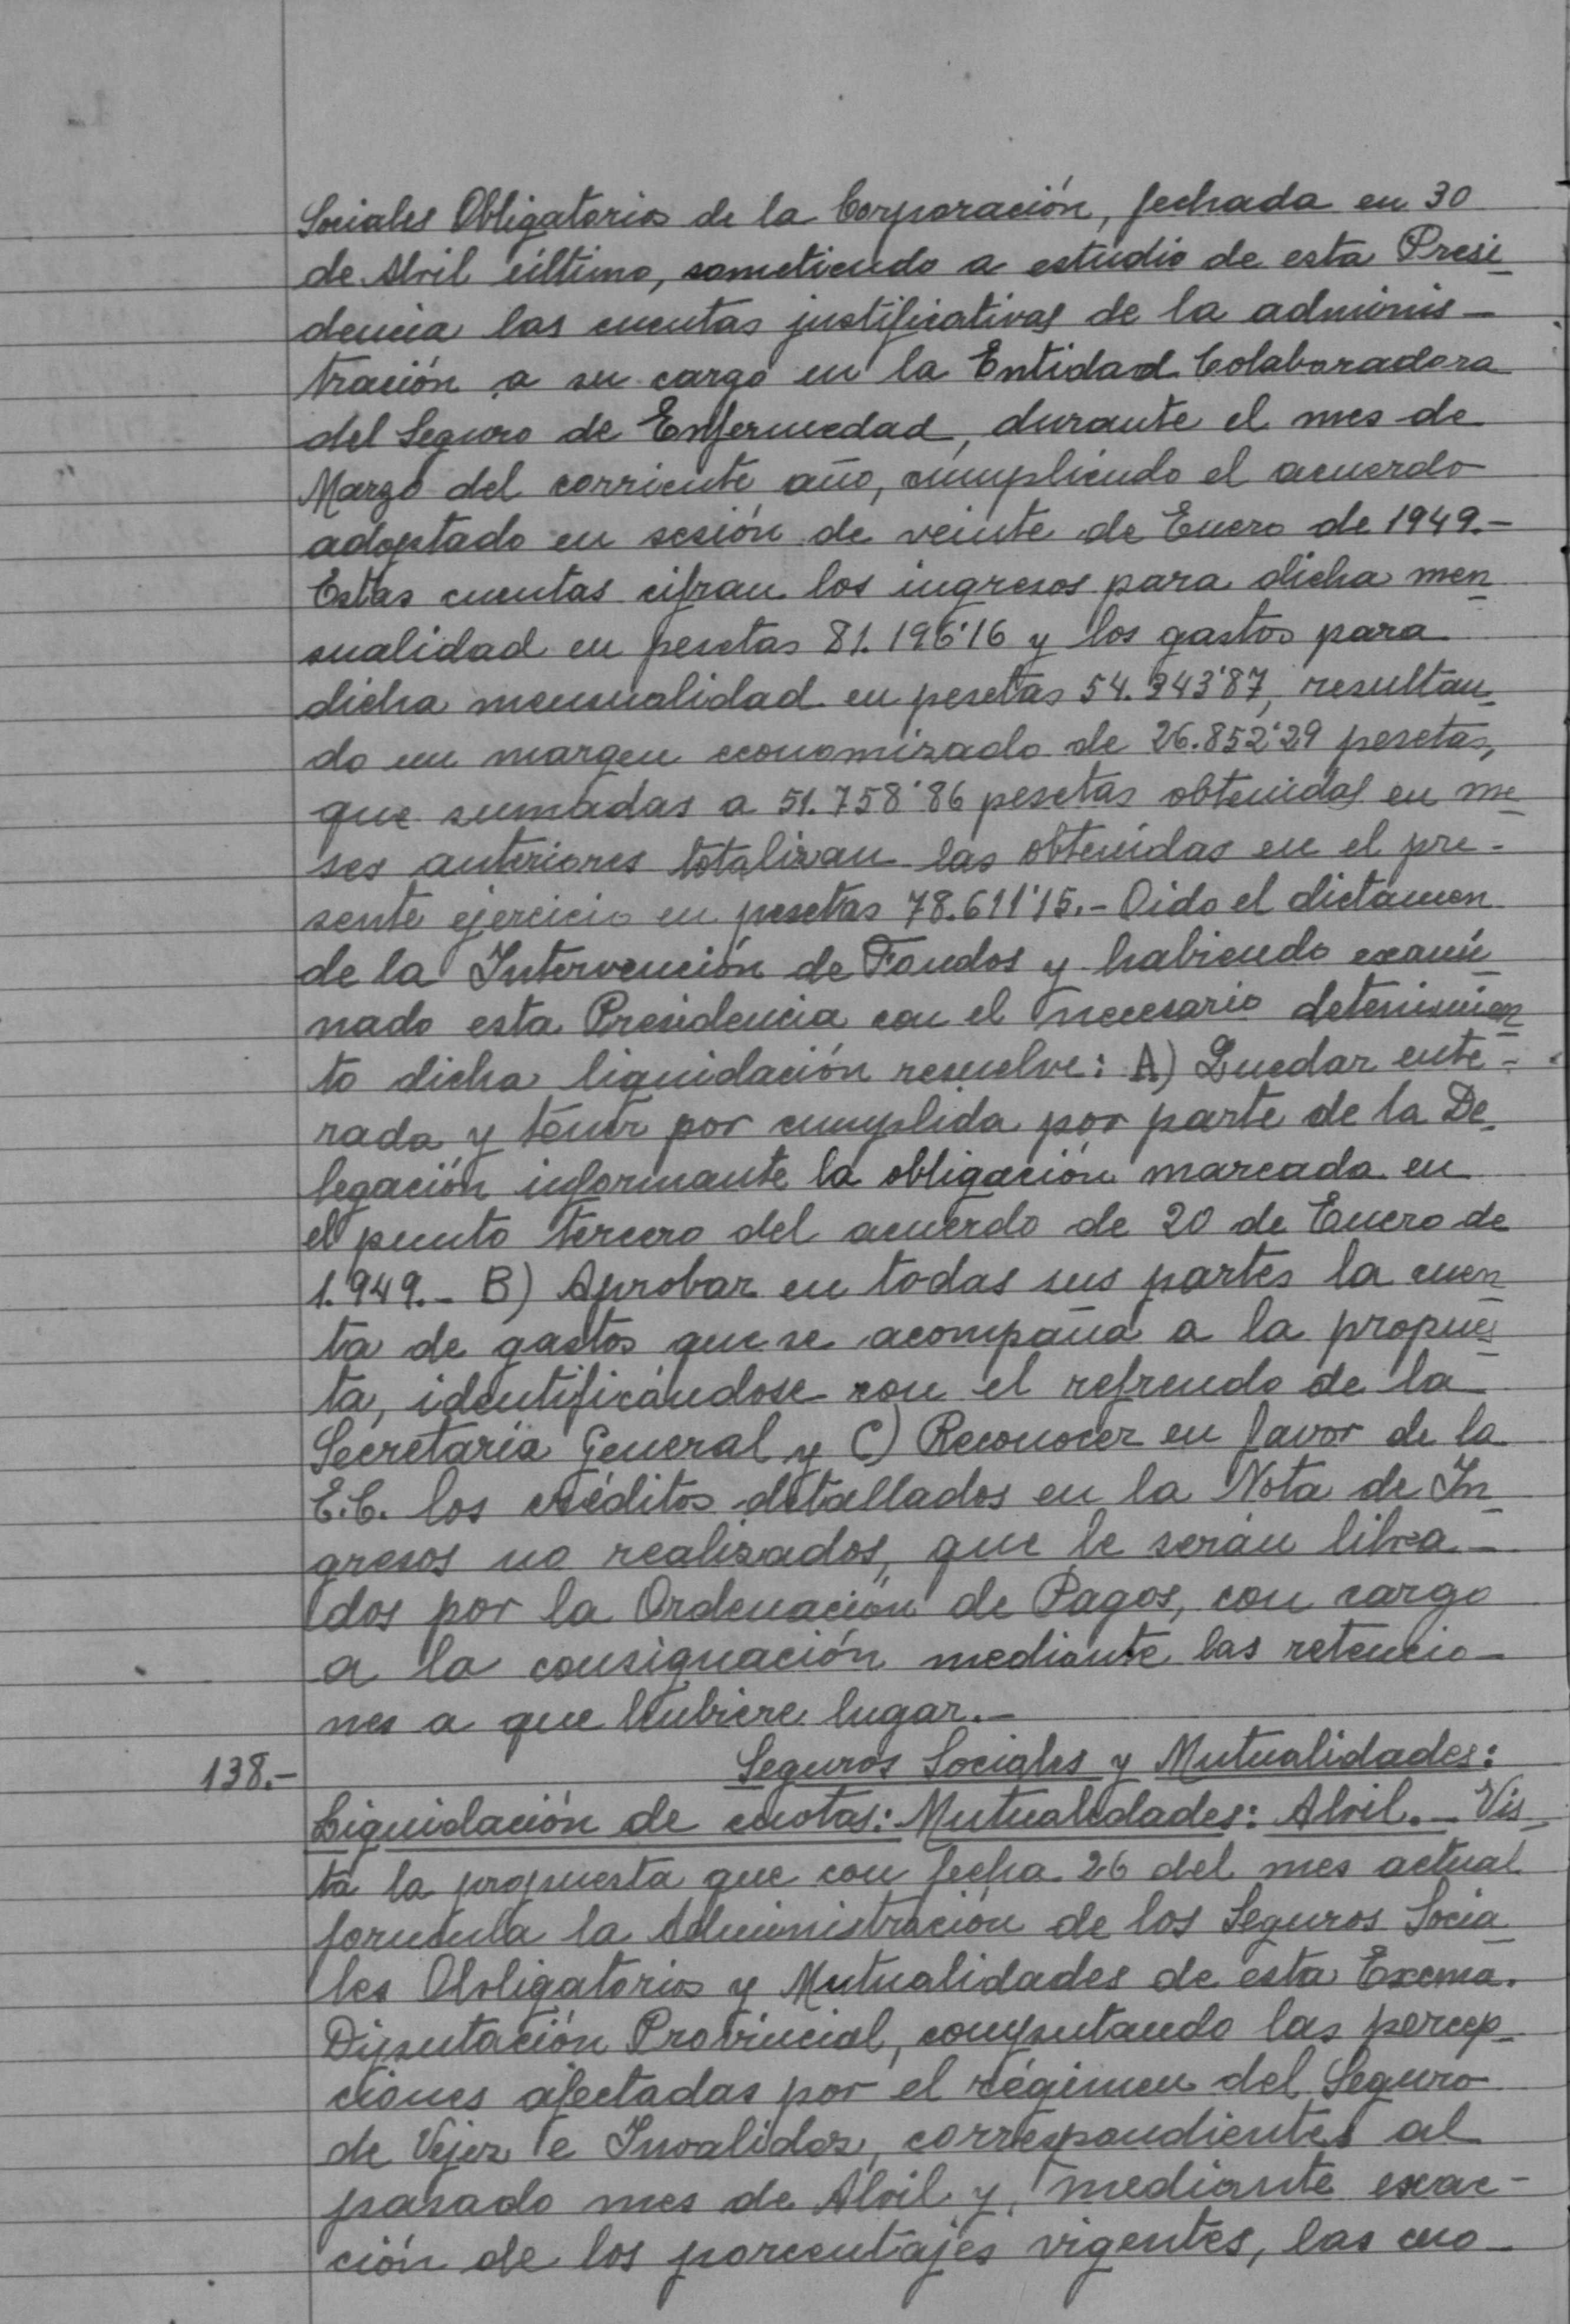 Sociales Obligatorios de la Corporación, fechada en 30
de Abril último, sometiendo a estudio de esta Presi-
dencia las cuentas justificativas de la adminis-
tración a su cargo en la Entidad Colaboradora
del Seguro de Enfermedad, durante el mes de
Marzo del corriente año, cumpliendo el acuerdo
adoptado en sesión de veinte de Enero de 1949.-
Estas cuentas cifran los ingresos para dicha men-
sualidad en pesetas 81.196'16 y los gastos para
dicha mensualidad en pesetas 54.343'87, resultan-
do un margen economizado de 26.852'29 pesetas,
que sumadas a 51.758'86 pesetas obtenidas en me-
ses anteriores totalizan las obtenidas en el pre-
sente ejercicio en pesetas 78.611'15.- Oido el dictamen
de la Intervención de Fondos y habiendo exami-
nado esta Presidencia con el necesario detenimien-
to dicha liquidación resuelve: A) Quedar ente-
rada y tener por cumplida por parte de la De-
legación informante la obligación marcada en
el punto tercero del acuerdo de 20 de Enero de
1.949.- B) Aprobar en todas sus partes la cuen-
ta de gastos que se acompaña a la propues-
ta, identificándose con el refrendo de la
Secretaría General y C) Reconocer en favor de la
E.C. los créditos detallados en la Nota de In-
gresos no realizados, que le serán libra-
dos por la Ordenación de Pagos, con cargo
a la consignación mediante las retencio-
nes a que hubiere lugar.-
138.- Seguros Sociales y Mutualidades:
Liquidación de cuotas: Mutualidades: Abril.- Vis-
ta la propuesta que con fecha 26 del mes actual
formula la Administración de los Seguros Socia-
les Obligatorios y Mutualidades de esta Excma.
Diputación Provincial, computando las percep-
ciones afectadas por el régimen del Seguro
de Vejez e Invalidez, correspondientes al
pasado mes de Abril y, mediante exac-
ción de los porcentajes vigentes, las cuo-